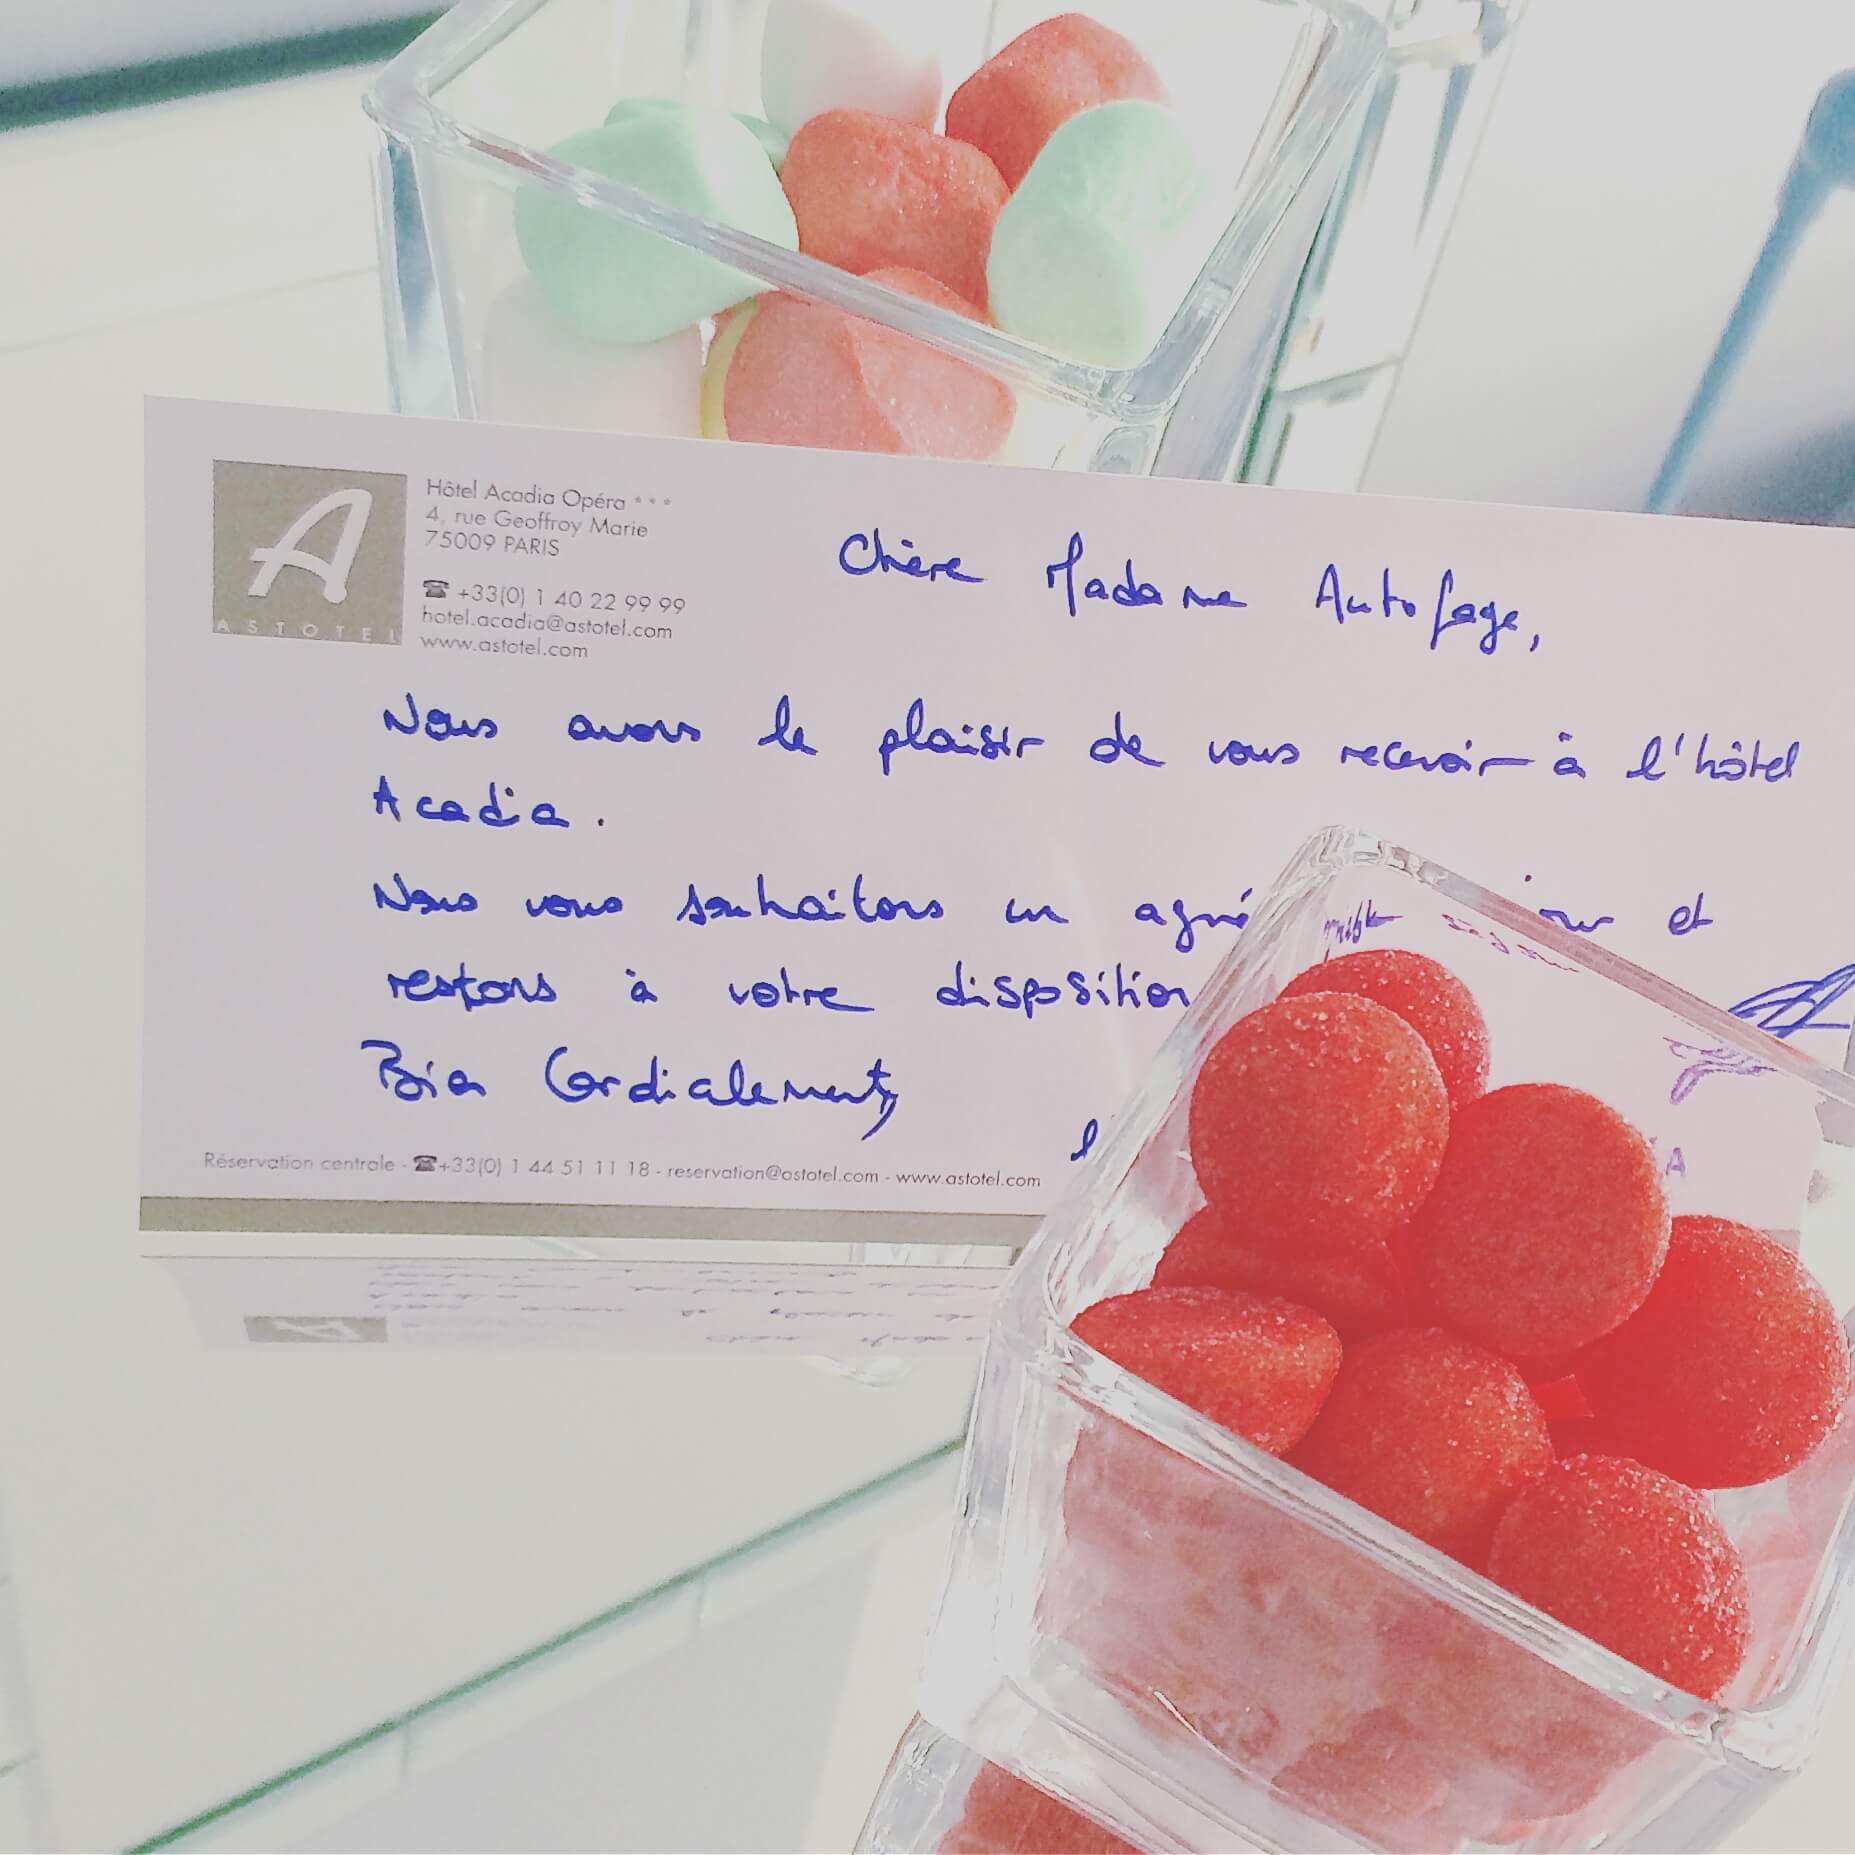 A
ASTOTEL
Hôtel Acadia Opéra ***
4, rue Geoffroy Marie
75009 PARIS
☎ +33(0) 1 40 22 99 99
hotel.acadia@astotel.com
www.astotel.com
Chère Madame Autofage,
Nous avons le plaisir de vous recevoir à l'hôtel
Acadia.
Nous vous souhaitons un et
restons à votre disposition
Bien Cordialement,
Réservation centrale - ☎+33(0) 1 44 51 11 18 - reservation@astotel.com - www.astotel.com